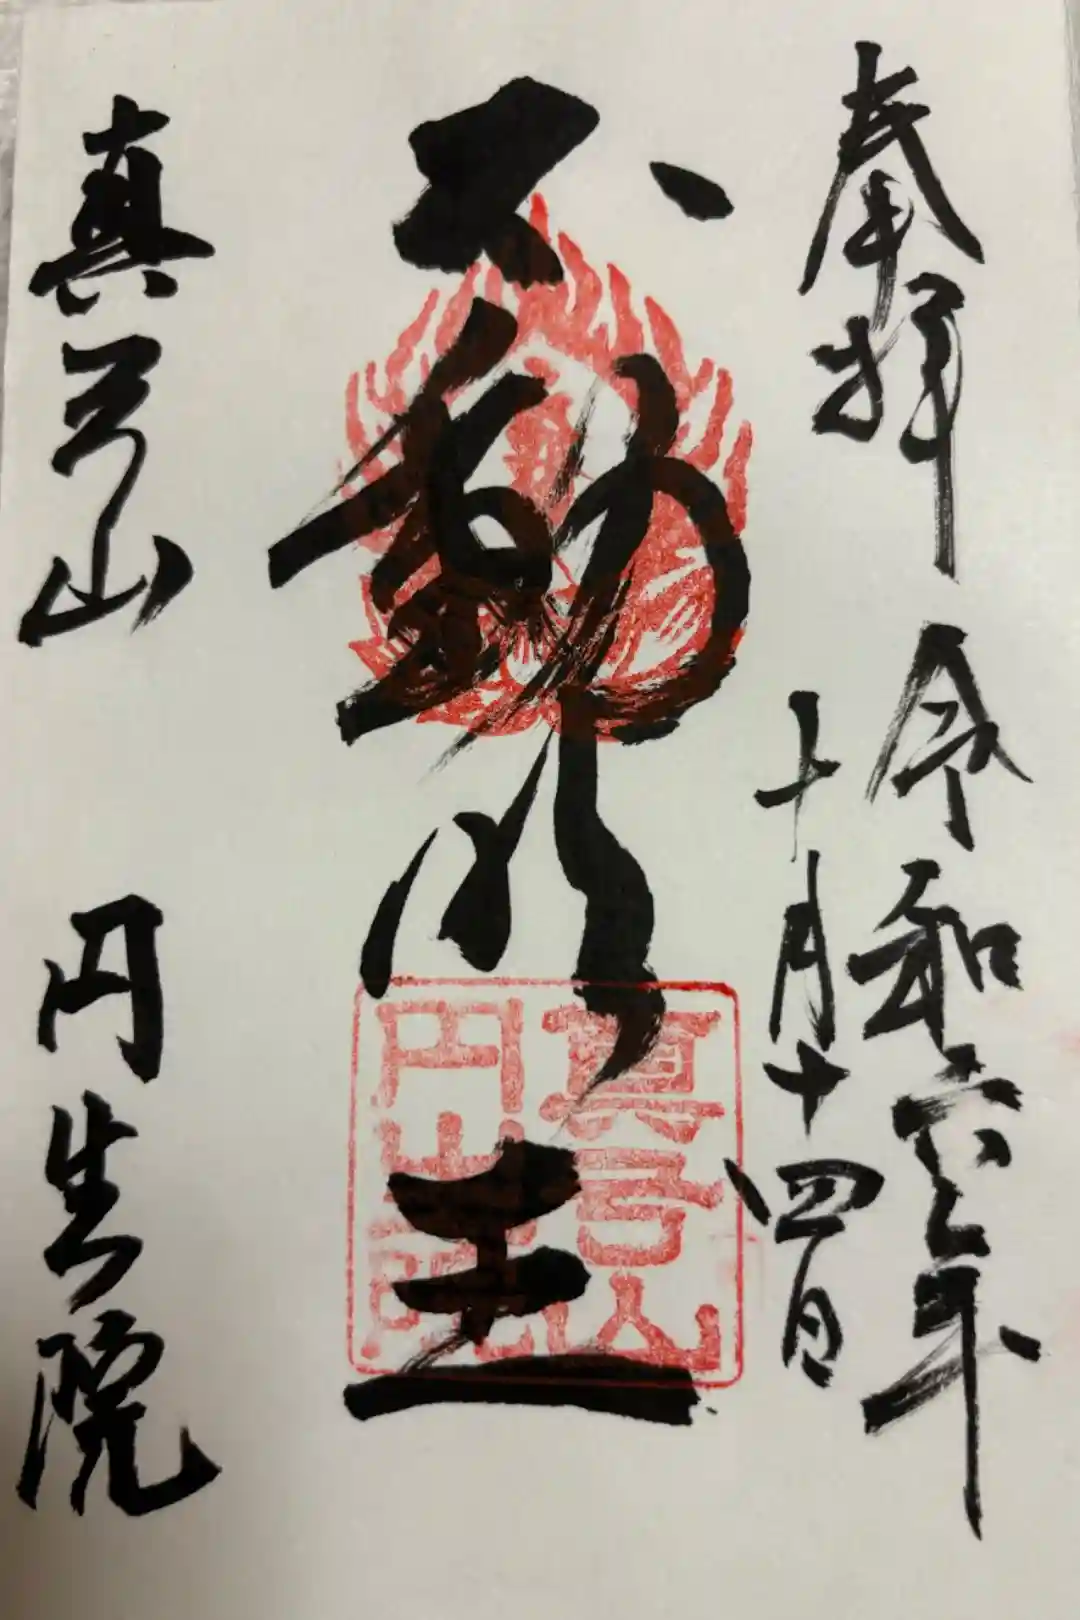 奉拝 令和六年
十月十四日
不動明王
真言山
円生院
真言山
円生院